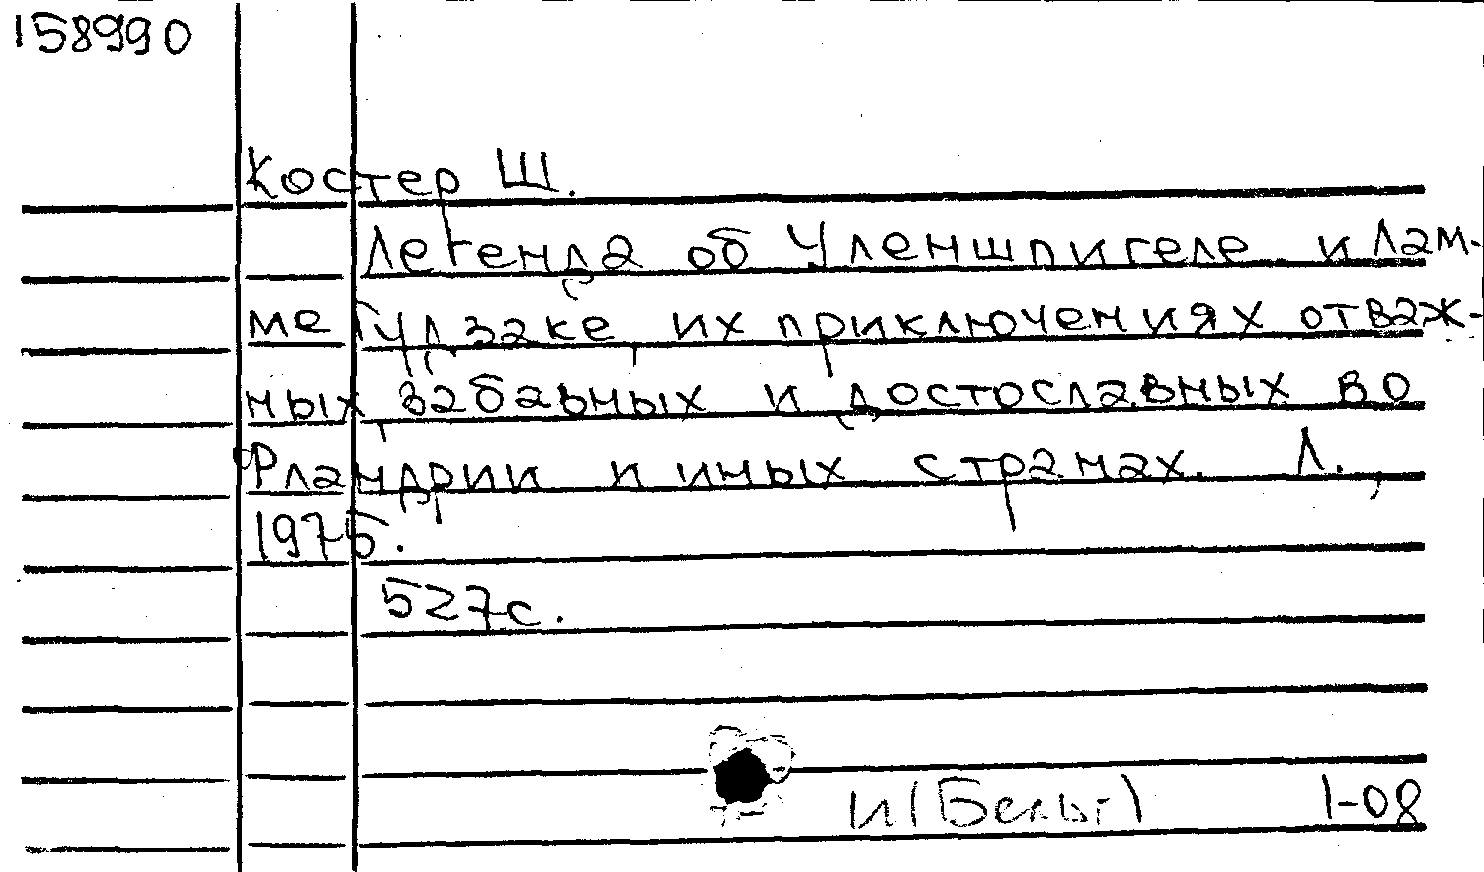 158990
Костер Ш.
Легенда об Уленшпигеле и Лам-
ме Гудзаке, их приключениях отваж-
ных, забавных и достославных во
Фландрии и иных странах. Л.,
1975.
527с.
И(Бельг) 1-08